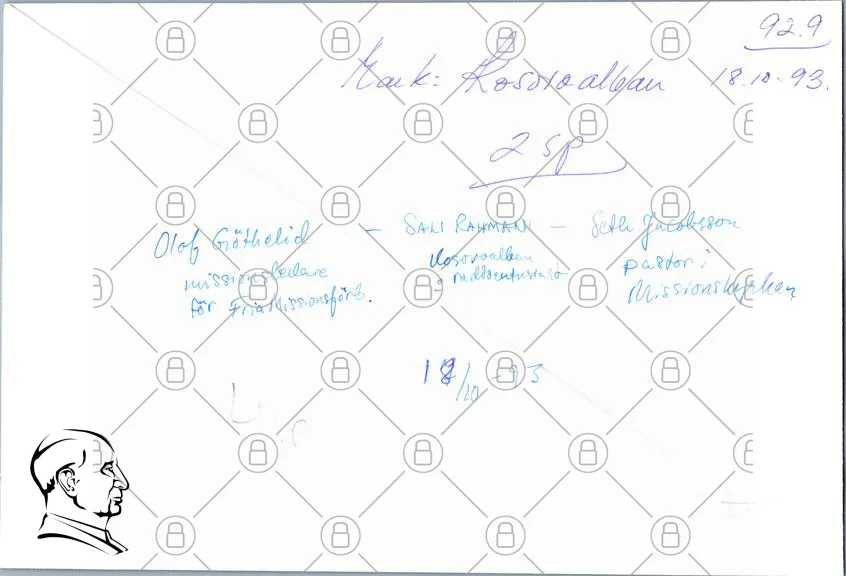 92.9
Mark: Kosovoalban 18.10.93.
2 sp
Olof Göthelid – SALI RAHMANI – Seth Jacobsson
missionsledare Kosovoalban pastor i
för Fria Missionsförb. o radioentusiast Missionskyrkan
18/10-93